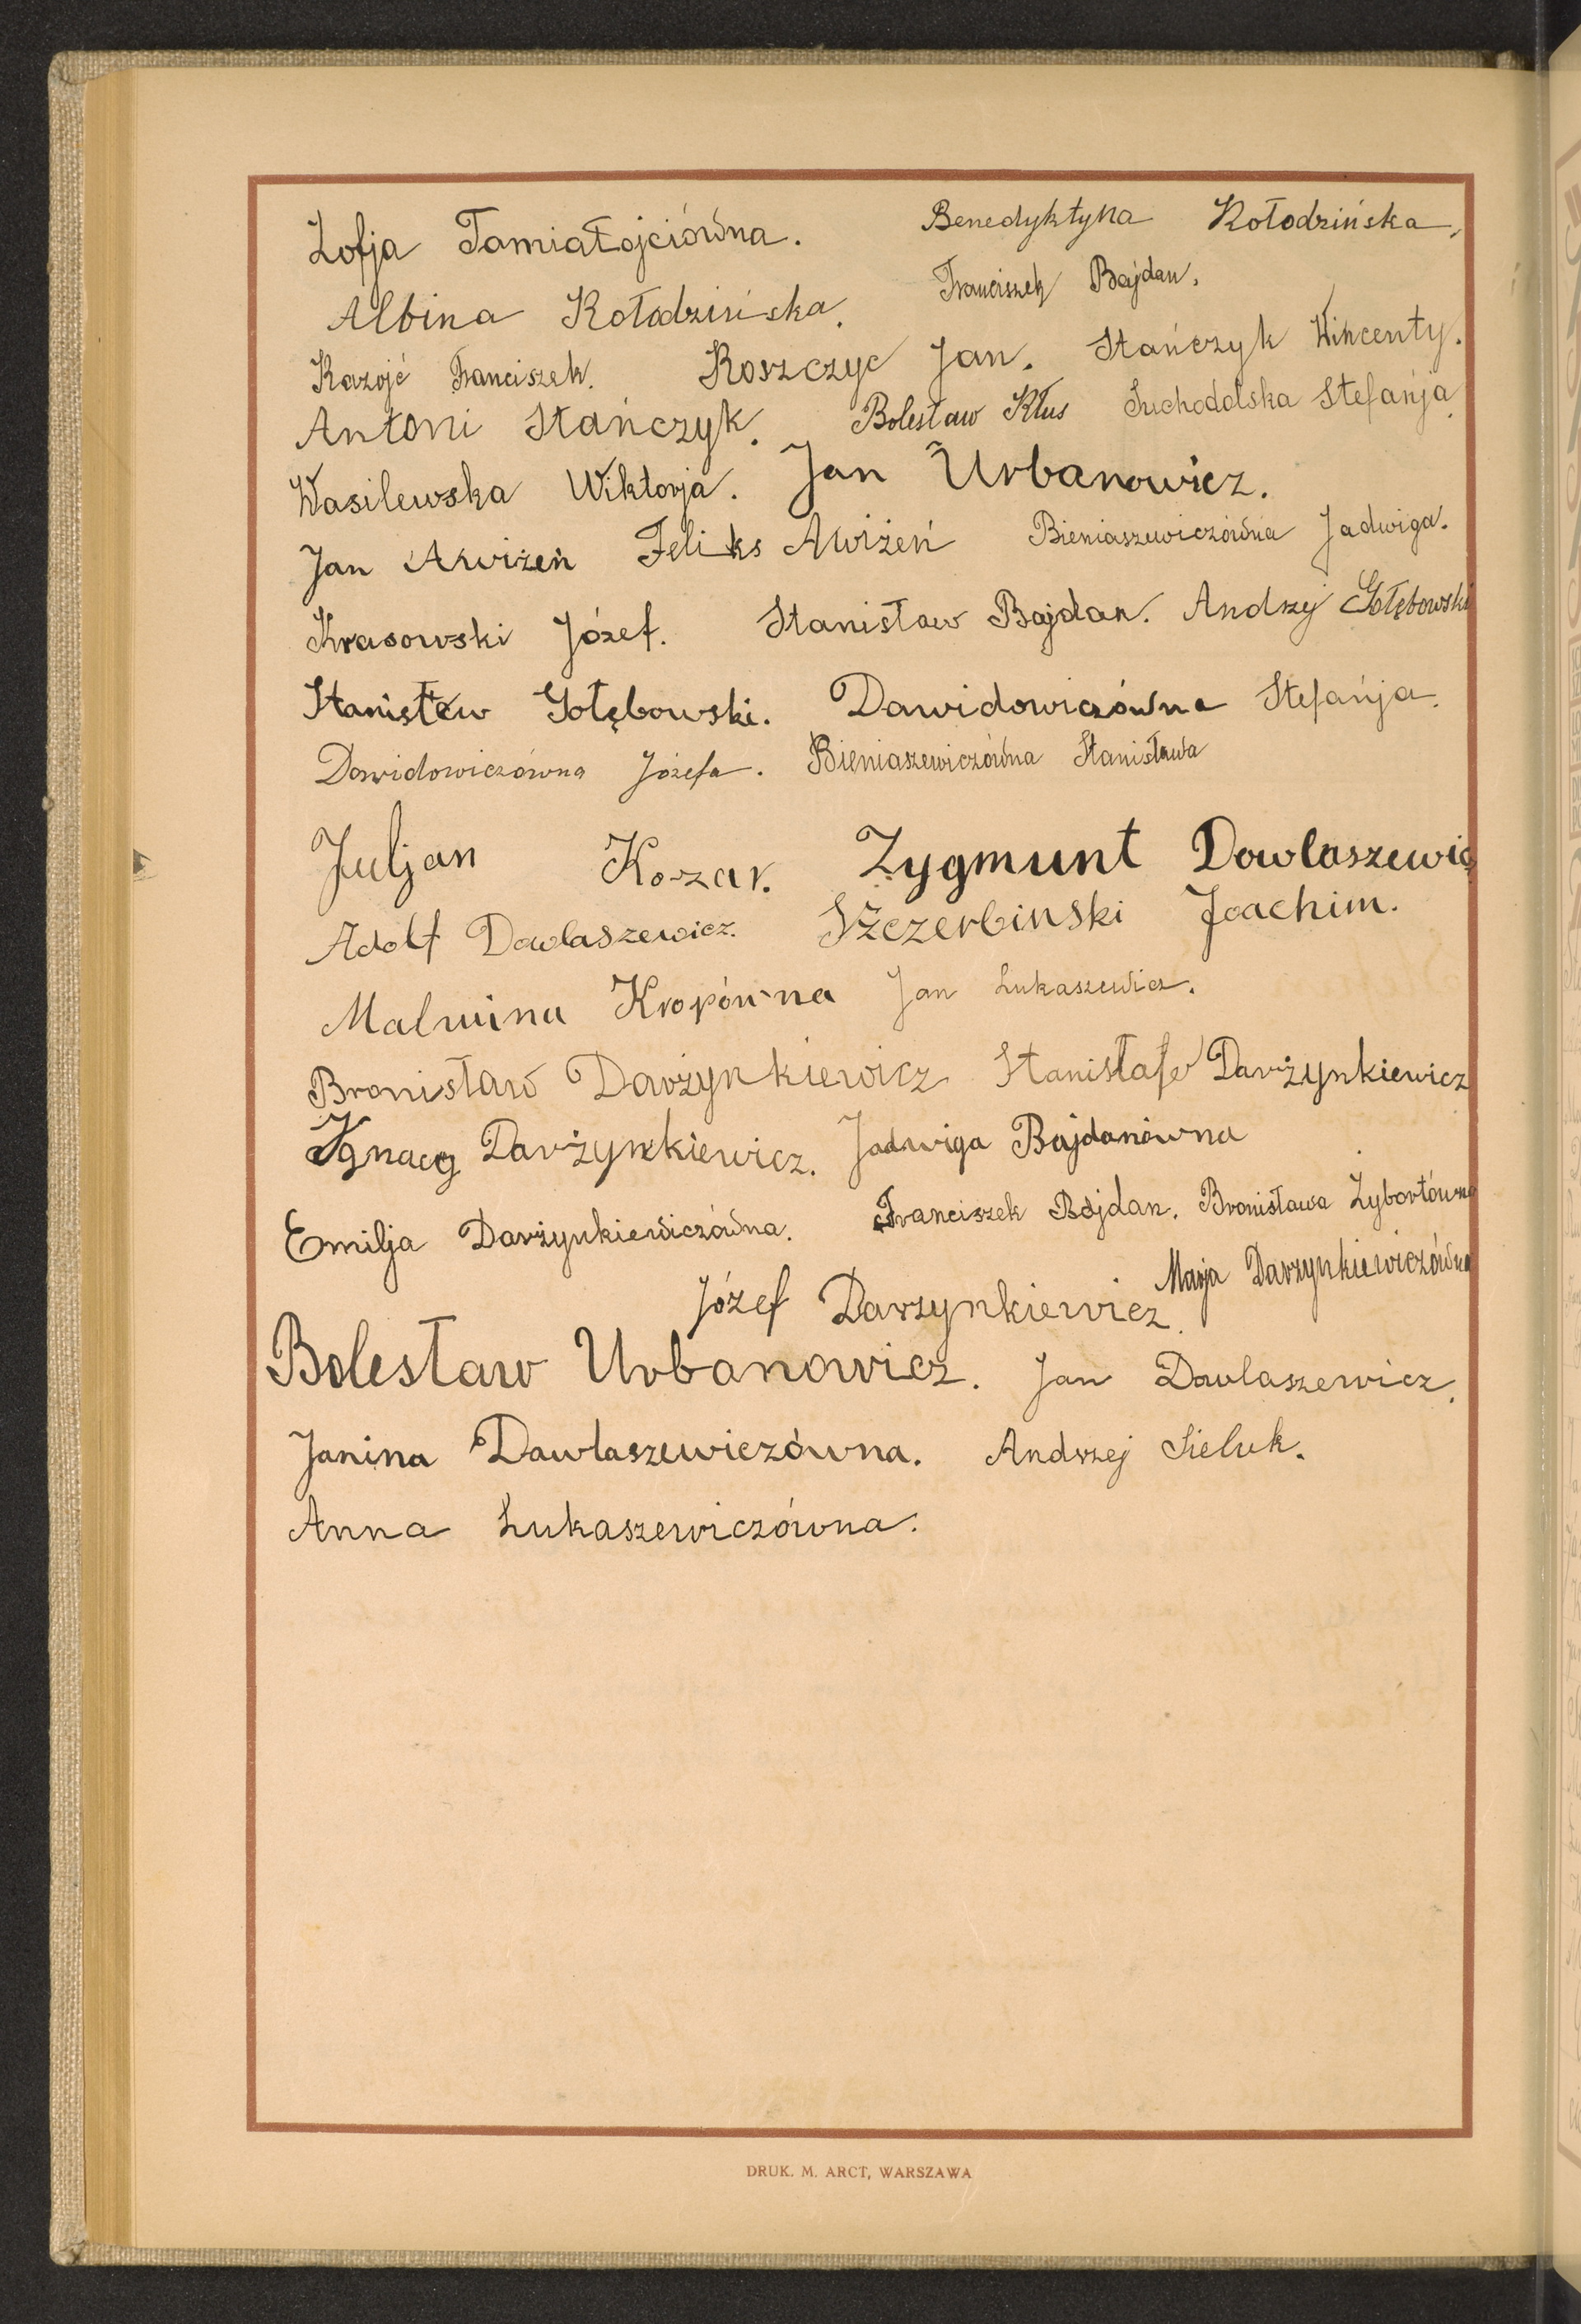 Zofja Tamiałojciówna. Benedyktyna Kołodzińska,
Albina Kołodzińska. Franciszek Bajdan.
Kazojć Franciszek. Koszczyc Jan. Stańczyk Wincenty.
Antoni Stańczyk. Bolesław Kłus Suchodolska Stefańja.
Wasilewska Wiktorja. Jan Urbanowicz.
Jan Awiżeń Feliks Awiżeń Bieniaszewiczówna Jadwiga.
Krasowski Józef. Stanisław Bajdan. Andrzy Gołębowski
Stanisław Gołębowski. Dawidowiczówna Stefańja.
Dawidowiczówna Józefa. Bieniaszewiczówna Stanisława
Juljan Kozar. Zygmunt Dowlaszewic
Adolf Dawlaszewicz. Szczerbinski Joachim.
Malwina Kropówna Jan Łukaszewicz.
Bronisław Darżynkiewicz Stanisław Darżynkiewicz
Ignacy Darżynkiewicz. Jadwiga Bajdanówna
Emilja Darżynkiewiczówna. Franciszek Bajdan. Bronisława Zybortówna
Józef Darzynkiewicz. Marja Darzynkiewiczówna
Bolesław Urbanowicz. Jan Dawlaszewicz.
Janina Dawlaszewiczówna. Andrzej Sieluk.
Anna Łukaszewiczówna.
DRUK. M. ARCT, WARSZAWA